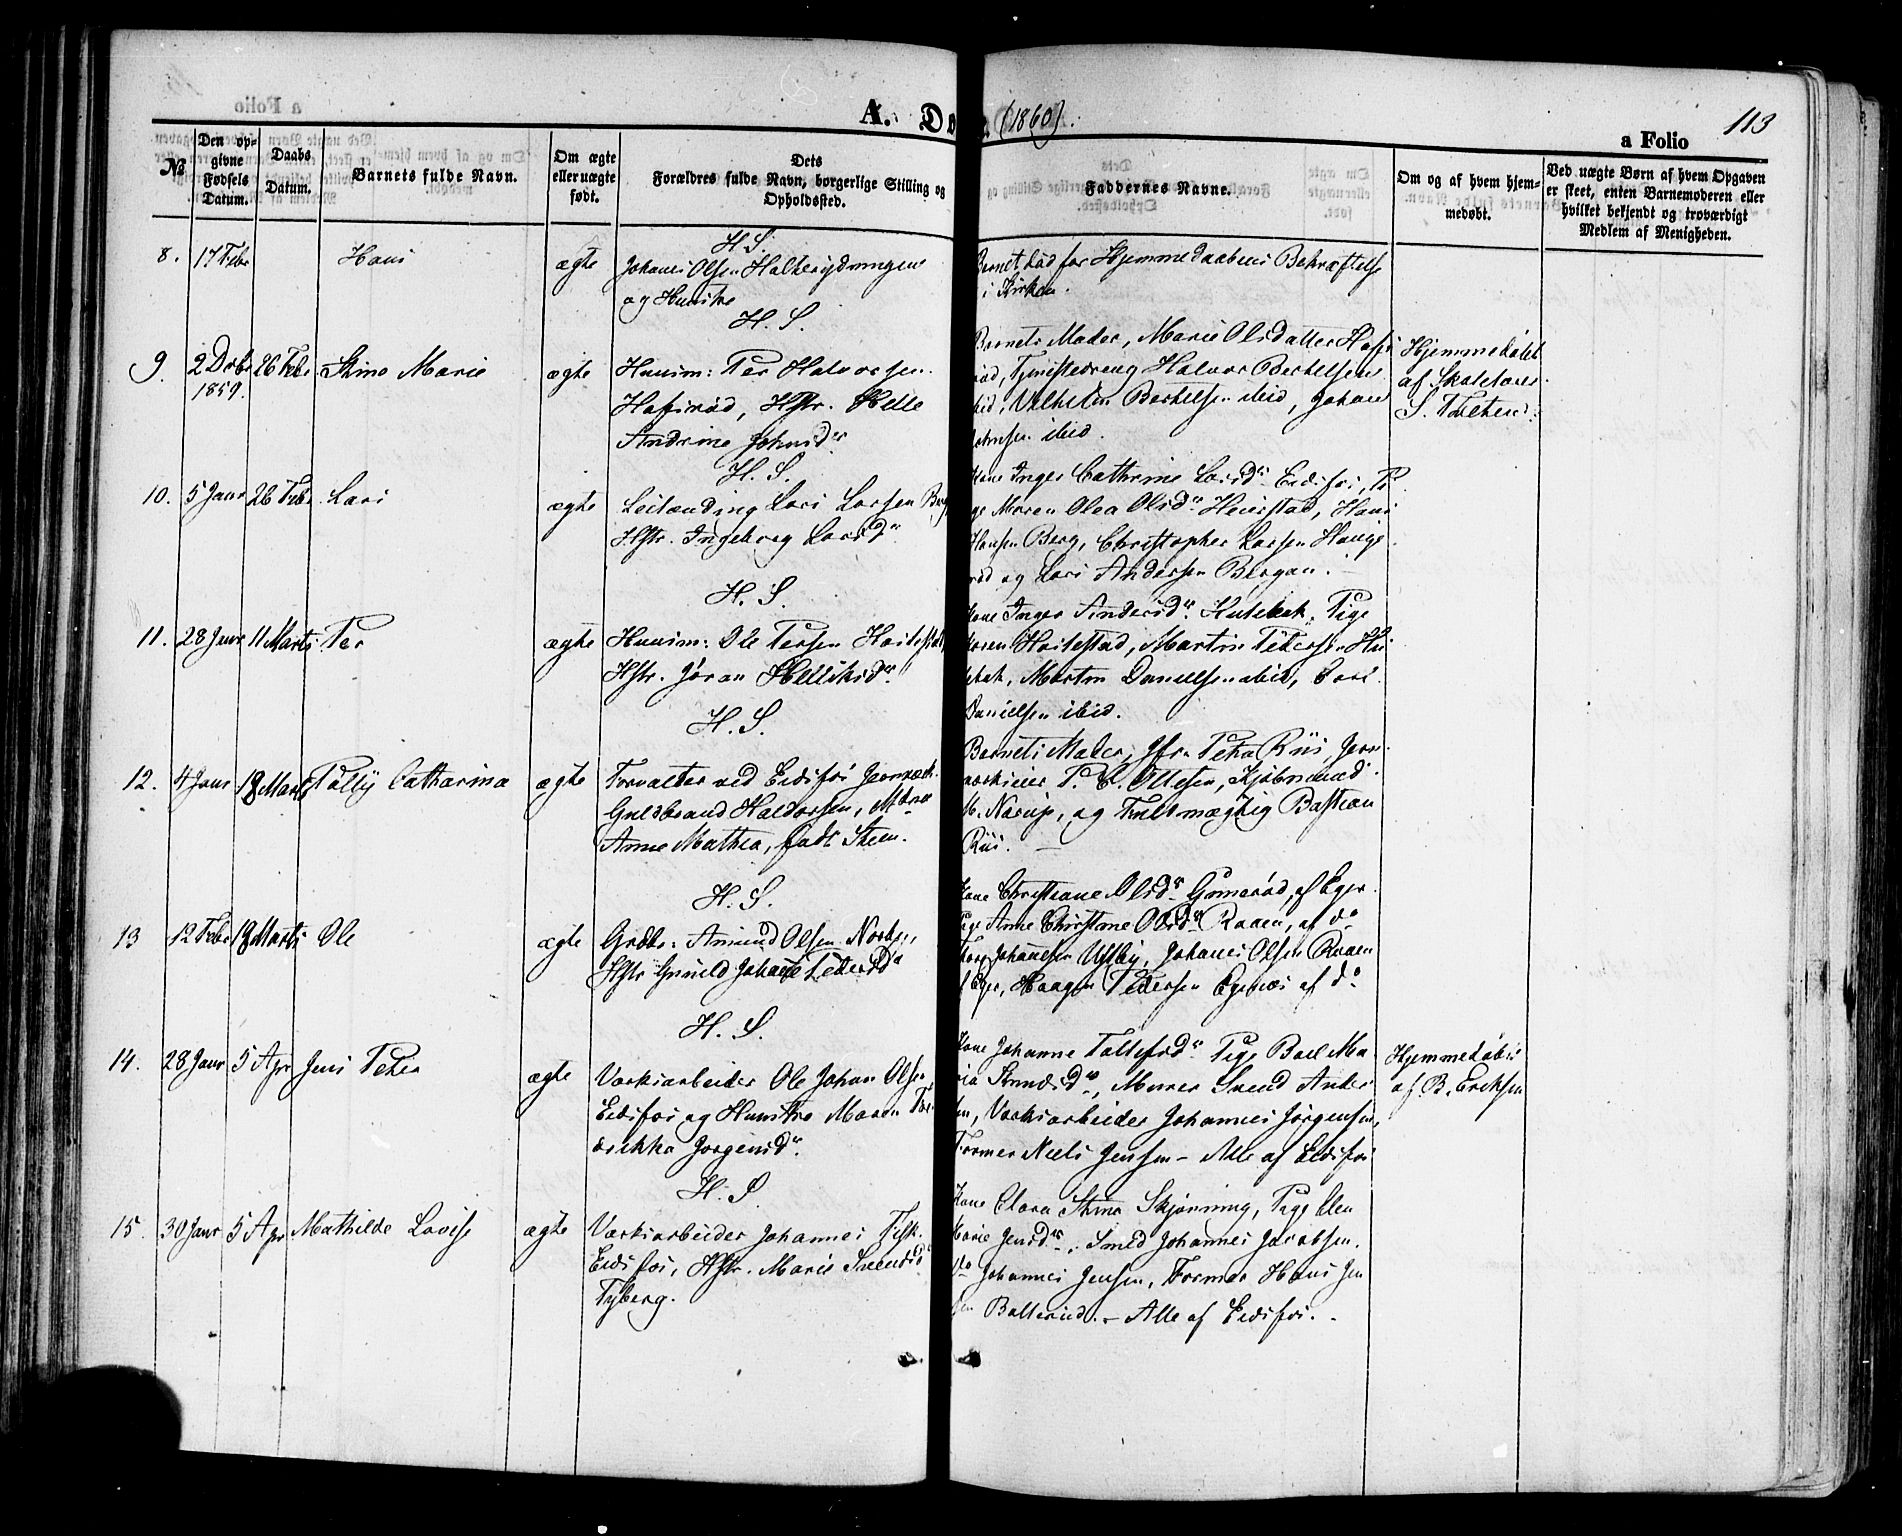 A. Dø (1860).
113
a Folio
№
Den opgivne Fødsels Datum.
Daabs Datum.
Barnets fulde Navn.
Om ægte eller uægte født.
Dets Forældres fulde Navn, borgerlige Stilling og Opholdssted.
Faddernes Navne.
Om og af hvem hjemmedøbt.
Ved uægte Børn af hvem Opgaven er skeet, enten Barnemoderen eller hvilket bekjendt og troværdigt Medlem af Menigheden.
H. S.
8. 17 Febr Hans ægte Johanes Olsen
og Hustrue
Barnet død før Hjemmedaabens Bekræftelse
i Kirken.
H. S.
9. 2 Dcbr 1859. 26 Febr Stine Marie ægte Huusm: Per Halvorsen
Hafsrød, Hstr. Helle
Andrine Johnsdr
Barnets Moder, Marie Olsdatter Hafs
rød, Tjenestedreng Halvor Bertelsen
ibid, Vilhelm Bertelsen ibid, Johan
Johnsen ibid.
Hjemmedøbt
af Skolelærer
S. Tveten.
H. S.
10. 5 Janr 26 Febr Lars ægte Leilænding Lars Larsen Berg
Hstr. Ingeborg Larsdr
Kone Inger Cathrine Larsdr Eidsfos, Pi
ge Maren Olea Olsdr Heierstad, Hans
Hansen Berg, Christopher Larsen Hauge
rød og Lars Andersen Bergan.
H. S.
11. 28 Janr 11 Marts Per ægte Huusm: Ole Persen Haitestad,
Hstr. Jøran Helliksdr
Kone Inger Andersdr Hulebak, Pige
Karen Haitestad, Martin Petersen Hu
lebak, Morten Danielsen ibid, Carl
Danielsen ibid.
H. S.
12. 4 Janr 18 Marts Polly Catharina ægte Forvalter ved Eidsfos Jernværk
Guldbrand Haldorsen, M
Anne Mathea, født Steen.
Barnets Moder, Jfr. Petra Riis, Jern
værkseier P. C. Olsen, Kjøbmand
M. Narup, og Fuldmægtig Bastian
Riis.
H. S.
13 12 Febr 18 Marts Ole ægte Grdbr: Amund Olsen
Hstr Gunild Johane Pedersdr
Kone Christiane Olsdr Gunerød, af Eger
Pige Anne Christine Olsdr Raaen, af do
Johannesen Ulsby, Johanes Olsen Raaen
af Eger, Haagen Pedersen Egenes af do
H. S.
14. 28 Janr 5 Apr Jens Peter ægte Værksarbeider Ole Johan Olsen
Eidsfos og Hustrue Maren Fre
derikke Jørgensdr
Kone Johanne Tollefsdr Pige Boel Ma
ria Svendsdr, Murer Svend Ander
sen, Værksarbeider Johannes Jørgensen,
Former Niels Jensen – Alle af Eidsfos
Hjemmedøbt
af B. Eriksen
H. S.
15. 30 Janr 5 Apr Mathilde Lovise ægte Værksarbeider Johannes Fisk
Eidsfos, Hstr. Marie Svendsdr
Tyberg.
Kone Clara Stine Skjønning, Pige Elen
Marie Jensdr, Smed Johannes Jacobsen
do Johannes Jensen, Former Hans Jen
sen Bollerud. – Alle af Eidsfos.